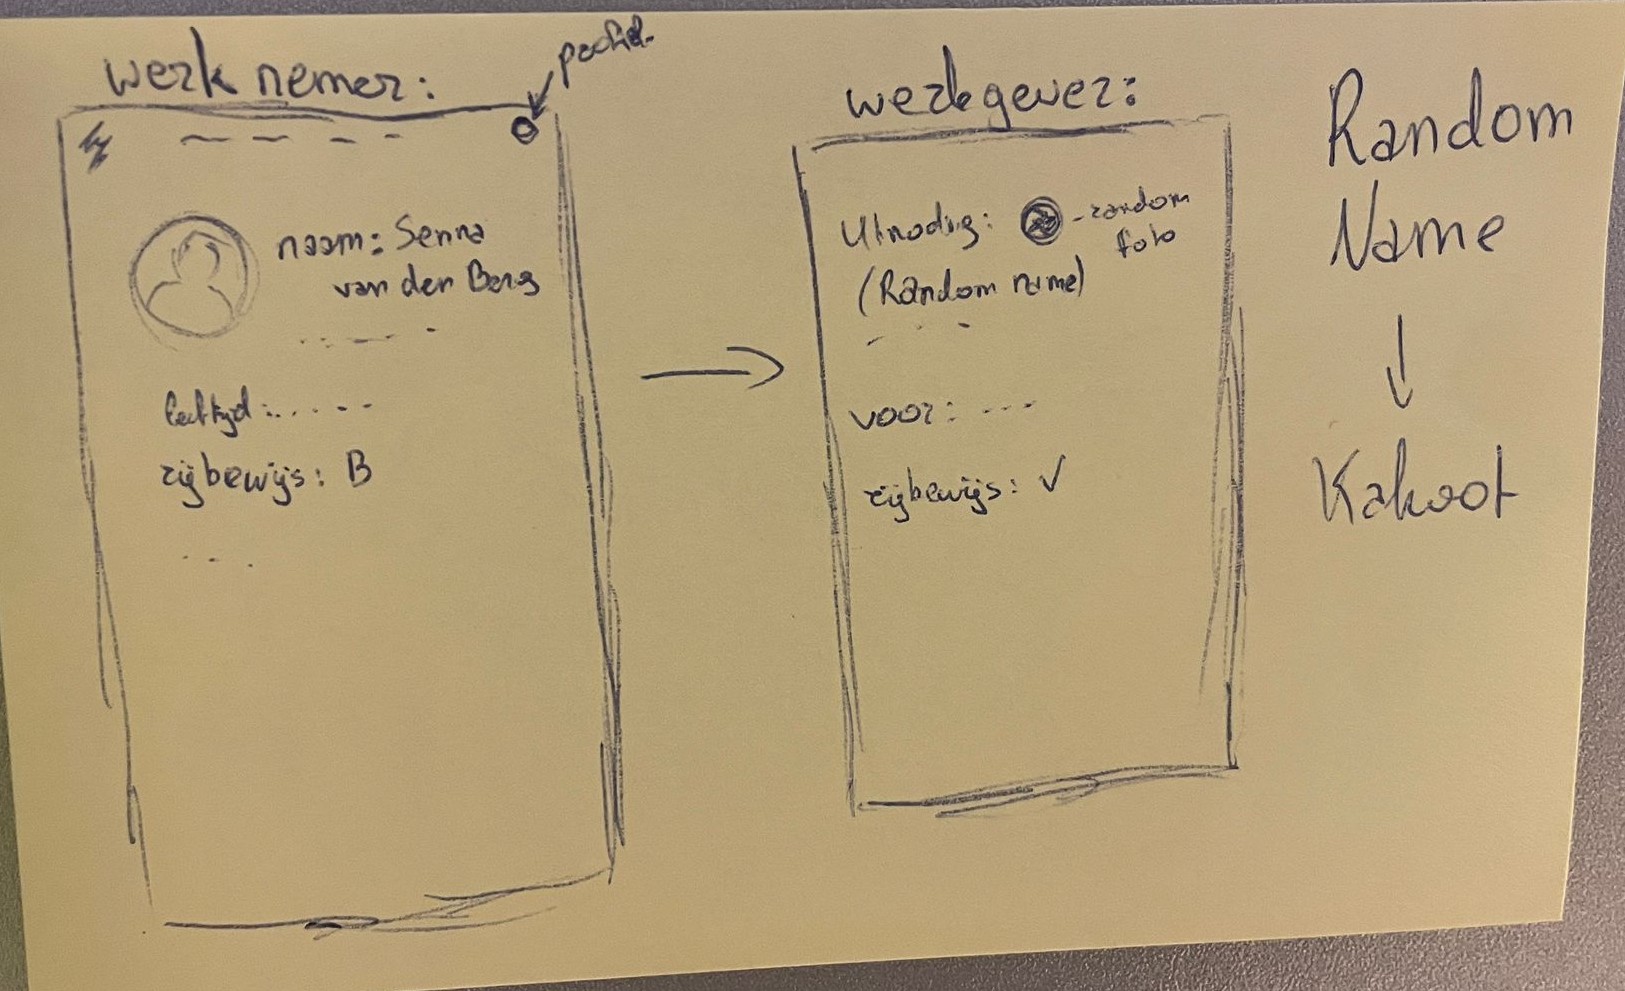 werknemer:
profiel
naam: Senna
van den Berg
leeftijd: .....
rijbewijs: B
werkgever:
Uitnodig:
- random
foto
(Random name)
voor: ---
rijbewijs: ✓
Random
Name
Kahoot